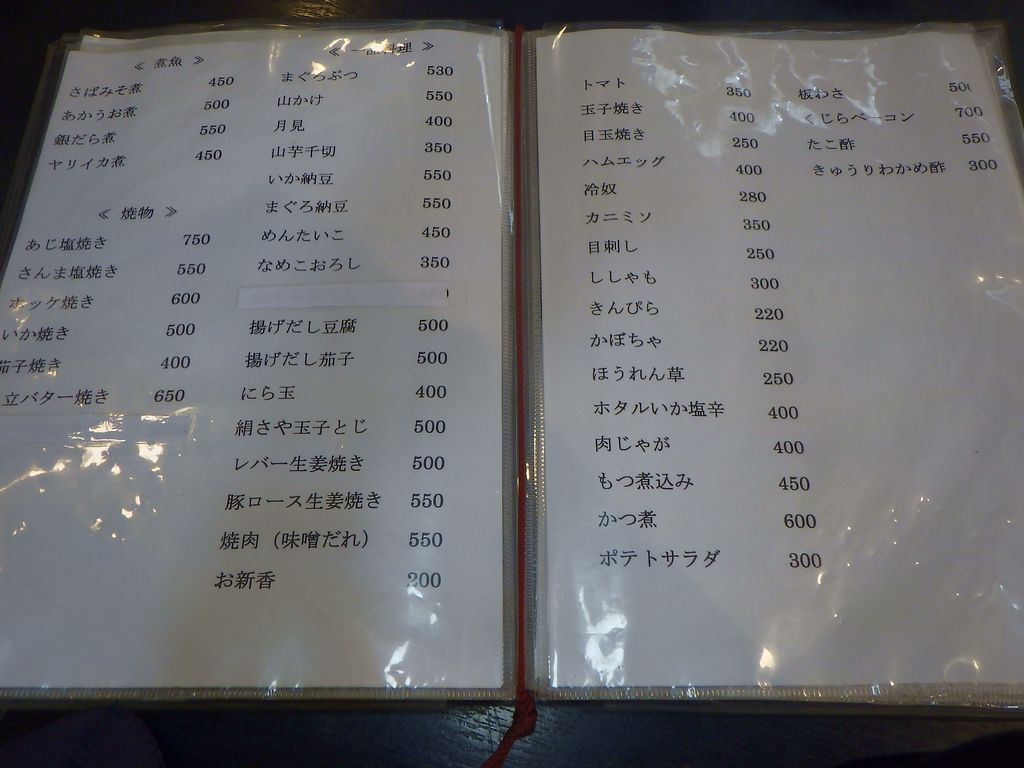 ≪ 煮魚 ≫
さばみそ煮 450
あかうお煮 500
銀だら煮 550
ヤリイカ煮 450
≪ 焼物 ≫
あじ塩焼き 750
さんま塩焼き 550
ホッケ焼き 600
いか焼き 500
茄子焼き 400
立バター焼き 650
≪ 一品料理 ≫
まぐろぶつ 530
山かけ 550
月見 400
山芋千切 350
いか納豆 550
まぐろ納豆 550
めんたいこ 450
なめこおろし 350
揚げだし豆腐 500
揚げだし茄子 500
にら玉 400
絹さや玉子とじ 500
レバー生姜焼き 500
豚ロース生姜焼き 550
焼肉（味噌だれ） 550
お新香 200
トマト 350
玉子焼き 400
目玉焼き 250
ハムエッグ 400
冷奴 280
カニミソ 350
目刺し 250
ししゃも 300
きんぴら 220
かぼちゃ 220
ほうれん草 250
ホタルいか塩辛 400
肉じゃが 400
もつ煮込み 450
かつ煮 600
ポテトサラダ 300
板わさ 500
くじらベーコン 700
たこ酢 550
きゅうりわかめ酢 300